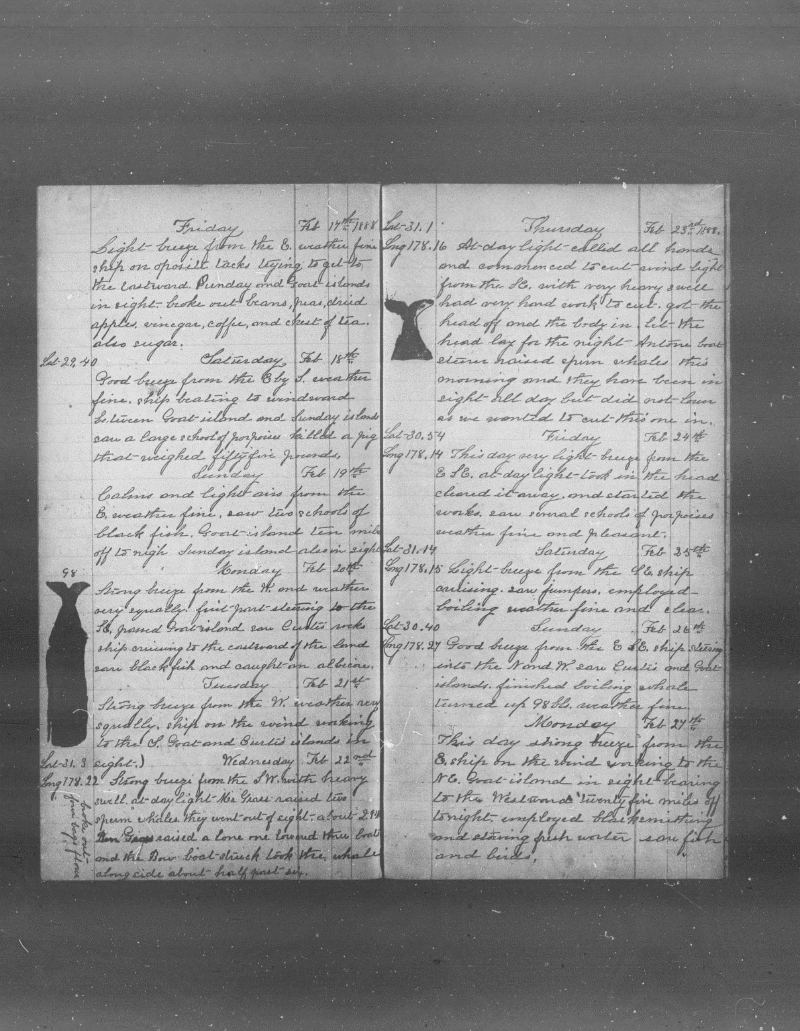 Friday Feb 17th 1888
Light breeze from the E. weather fine
ship on oposite tacks trying to get to
the Eastward Sunday and Goat islands
in sight. broke out beans, peas, dried
apples, vinegar, coffie, and chest of tea.
also sugar.
Lat 29,40 Saturday Feb 18th
Good breeze from the E by S. weather
fine. ship beating to windward
between Goat island and Sunday islands
saw a large school of porpoises killed a pig
that weighed fifty five pounds.
Sunday Feb 19th
Calms and light airs from the
E. weather fine. saw two schools of
black fish. Goat island ten miles
off to nigh Sunday island also in sight
Monday Feb 20th
98
Strong breeze from the W. and weather
very squally. first part steering to the
SE, passed Goat island saw Curtis rocks
ship cruising to the eastward of the land
saw black fish and caught an albicore.
Tuesday Feb 21st
Strong breeze from the W. weather very
squally. ship on the wind working
to the S. Goat and Curtis islands in
sight.)
Lat 31.3 Wednesday Feb 22nd
Long 178.22 Strong breeze from the SW. with heavy
swell. at day light Mr raised two
sperm whales they went out of sight. about 2 PM
raised a lone one lowered three boats
and the Bow boat struck took the whale
along cide about half past six.
broke out
four bags flour
Lat 31.1 Thursday Feb 23rd 1888.
Long 178.16 At day light called all hands
and commenced to cut wind light
from the SE. with very heavy swell
had very hard work to cut. got the
head off and the body in. let the
head lay for the night Antone boat
sterer raised sperm whales this
morning and they have been in
sight all day but did not lower
as we wanted to cut this one in.
Lat 30.54 Friday Feb 24th
Long 178.14 This day very light breeze from the
E SE. at day light took in the head
cleared it away. and started the
works. saw several schools of porpoises
weather fine and pleasant.
Lat 31.14 Saturday Feb 25th
Long 178.15 Light breeze from the SE ship
cruising. saw jumpers. employed
boiling weather fine and clear.
Lat 30.40 Sunday Feb 26th
Long 178.27 Good breeze from the E SE. ship steering
into the N and W. saw Curtis and Goat
islands. finished boiling whale
turned up 98 bls. weather fine
Monday Feb 27th
This day strong breeze from the
E. ship on the wind working to the
NE. Goat island in sight bearing
to the Westward twenty five miles off
to night. employed blacksmithing
and stowing fresh water saw fish
and birds.